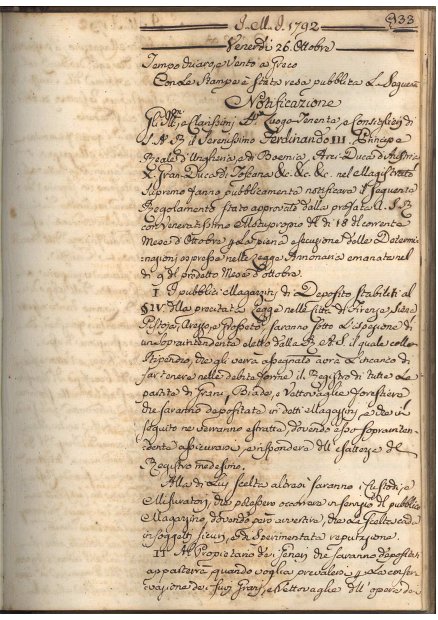 933
J. M. J. 1792
Venerdì 26. Ottobre
Tempo chiaro, e Vento a Greco
Con le Stampe è stata resa pubblica la Seguen
Notificazione
Gl' Ill.mi, e Clarissimi SS.ri Luogo-Tenente, e Consiglieri di
S. A. R. il Serenissimo Ferdinando III. Principe
Reale d'Ungheria, e di Boemia, Arci-Duca d'Austria
Gran-Duca di Toscana &c. &c. &c. nel Magistrato
Supremo fanno pubblicamente notificare il seguente
Regolamento stato approvato dalla prefata A. S. R.
con Veneratissimo Motuproprio de' 18. del corrente
Mese d'Ottobre p. la piena esecuzione delle Determi-
nazioni espresse nella Legge Annonaria emanata nel
dì 9. del predetto Mese d'ottobre.
I. I pubblici Magazzini di Deposito stabiliti al
§ IV. della precitata Legge nelle Città di Firenze, Siena
Pistoja, Arezzo, e Grosseto, saranno sotto l'ispezione di
un Soprintendente eletto dalla R. A. S. il quale collo
Stipendio, che gli verrà assegnato avrà l'incarico di
far tenere nelle debite forme il Registro di tutte le
partite di Grani, Biade, e Vettovaglie forestiere
che saranno depositate in detti Magazzini, e che in
seguito ne verranno estratte, dovendo esso soprainten-
dente assicurarsi, e rispondere dell' esattezza del
Registro medesimo.
Alla di Lui scelta altresì saranno i Custodi, e
Misuratori, che potessero occorrere in servizio del pubblico
Magazzino, dovendo però avvertire, che la scelta cada
in soggetti sicuri, e di sperimentata reputazione.
II. Al Propietario de' generi che saranno depositati
apparterrà, quando voglia prevalersi p. la conser-
vazione de' suoi Grani, e Vettovaglie dell' opera de'